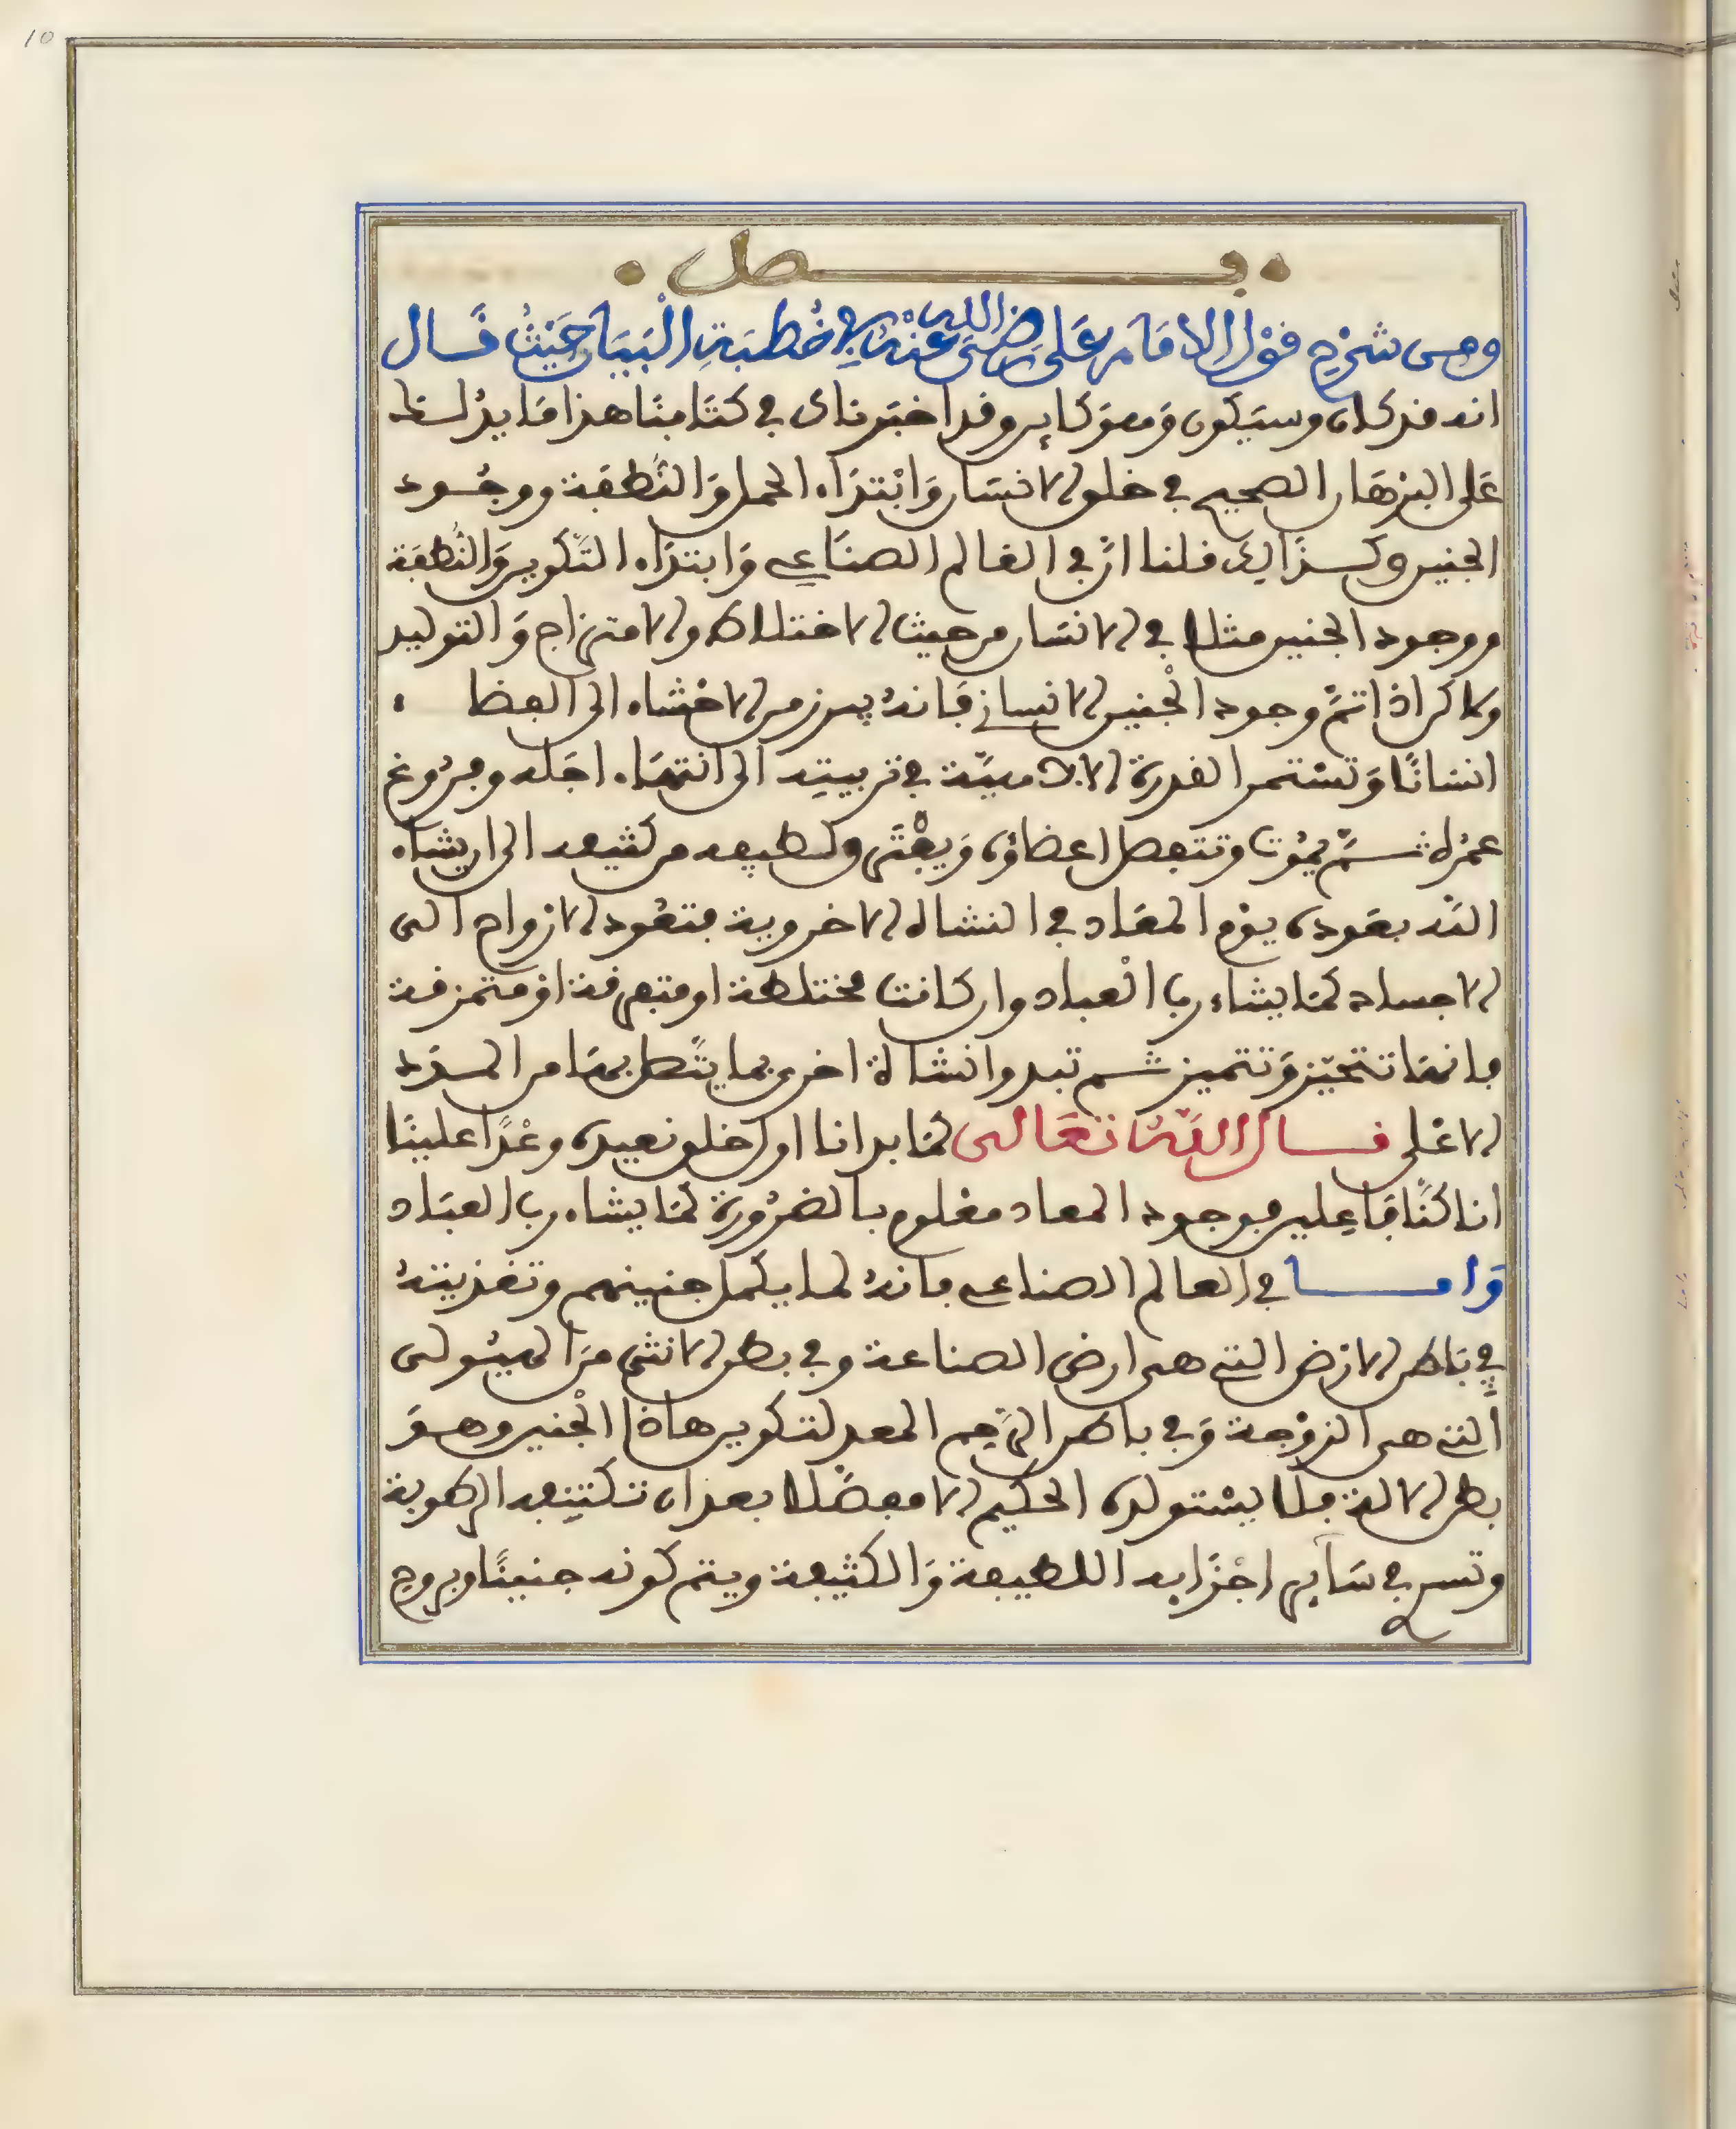 10
فصل
ومن شرح قول الامام على رضى الله عنه في خطبة البيان حيث قال
انه قد كان وسيكون وهو كاين وقد اخبرناك في كتابنا هذا ما يدلك
على البرهان الصحيح في خلق الانسان وابتداء الحمل والنطفة ووجود
الجنين وكذالك قلنا ان في العالم الصناعي وابتداء التكوين والنطفة
ووجود الجنين مثلا في الانسان من حيث الاختلاط والامتزاج والتوليد
ولاكن اذا تم وجود الجنين الانساني فانه يبرز من الاحشاء الى الفضا
انسانا وتستمر القدرة الادمية في تربيته الى انتهاء اجله وفروغ
عمره ثم يموت وتنفصل اعضاؤه ويفنى ولطيفه من كثيفه الى ان يشاء
الله بعوده يوم المعاد في النشاة الاخروية فتعود الارواح الى
الاجساد كما يشاء رب العباد وان كانت مختلطة او متفرقة او متمزقة
فانها تتحيز وتتميز ثم تبدوا نشاة اخرى بما يتصل بها من المدد
الاعلى قال الله تعالى كما بدانا اول خلق نعيده وعدا علينا
انا كنا فاعلين فوجود المعاد معلوم بالضرورة كما يشاء رب العباد
واما في العالم الصناعي فانه لما يكمل جنينهم وتغذيته
في باطن الارض التي هي ارض الصناعة وفي بطن الانثى من الهيولى
التي هي الزوجة وفي باطن الرحم المعد لتكوين هاذا الجنين وهو
بطن الالة فلا يستولده الحكيم الا مفصلا بعد ان تكتنفه الرطوبة
وتسري في ساير اجزايه اللطيفة والكثيفة ويتم كونه جنينا وبروح